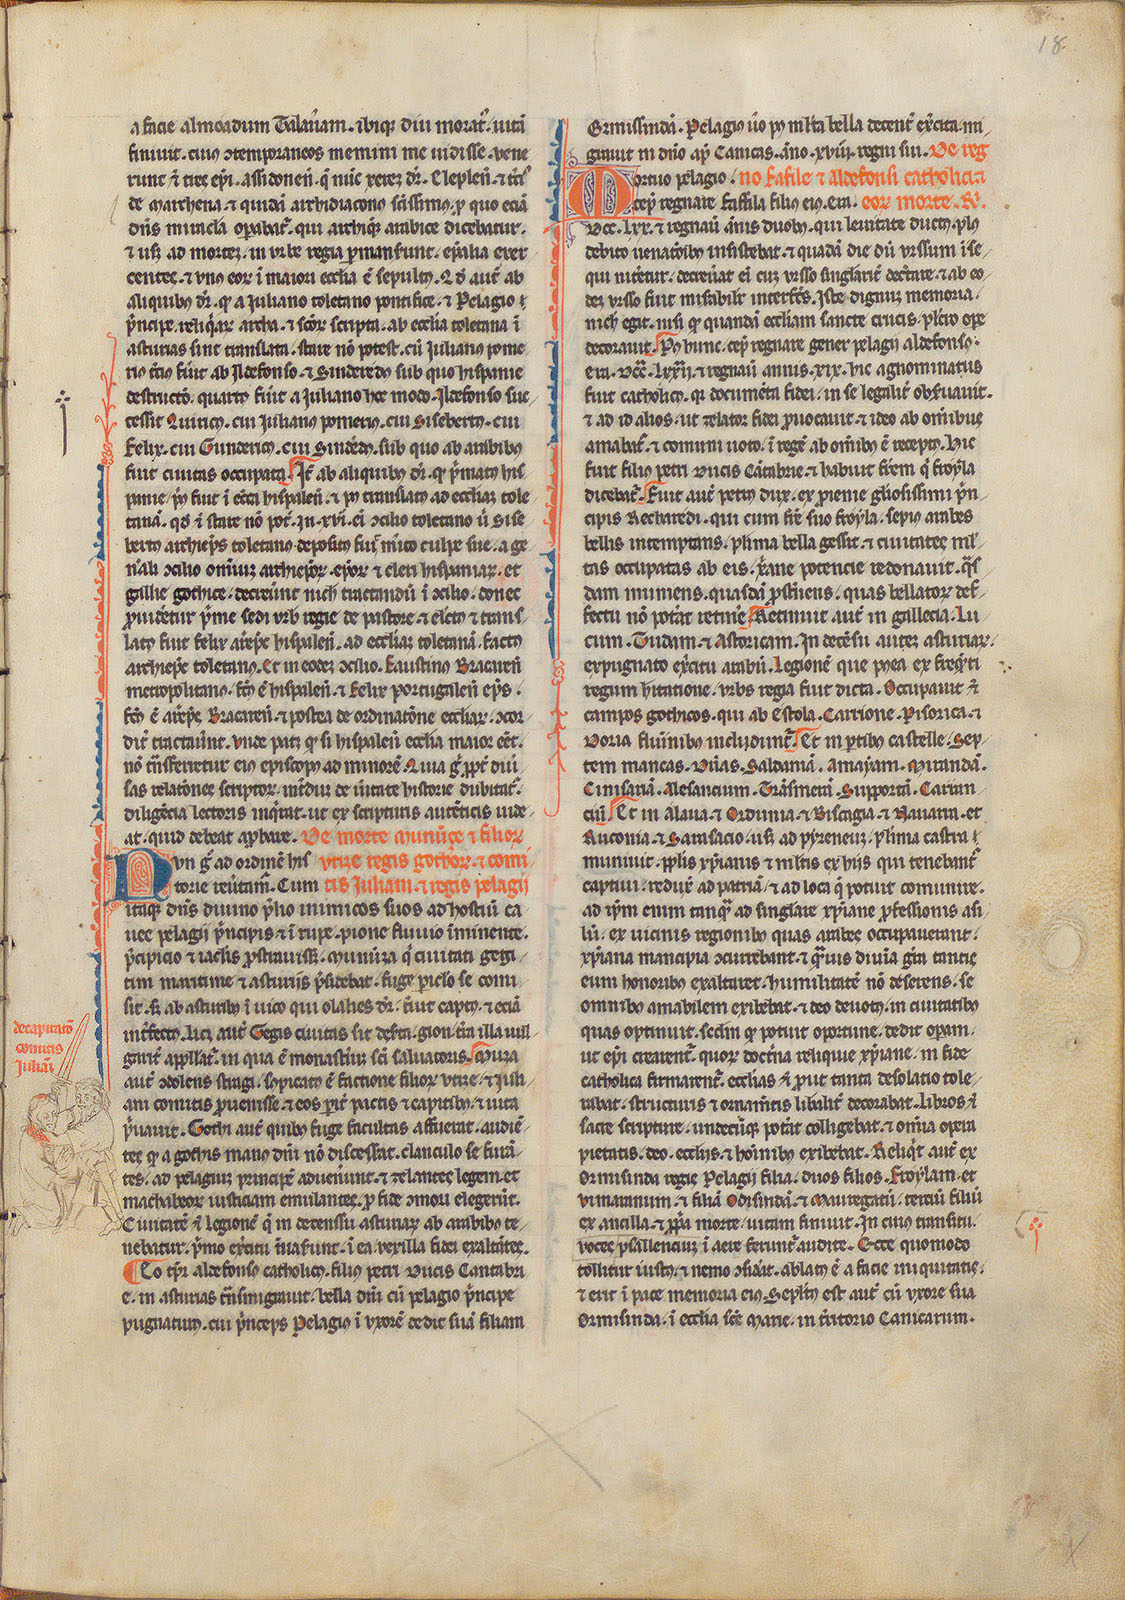 18
a facie almoadum Talau̅am · ibiq̅ diu morat᷒ · uita̅
finiuit · cuius ↄtemporaneos memini me uidisse · vene
runt ⁊ tres ep̅i · assidonen̅ · q̅ nu̅c xerez dr̅ · Eleplen̅ · ⁊ t̅cius
de marchena · ⁊ quida̅ archidiaconus sc̅issimus · p̱ quo ecia̅
dn̅s miracla op̱abat᷒ · qui archiq̅z arabice dicebatur ·
⁊ usq̅ ad mortez · in urbe regia p̱manserunt · ep̅alia exer
centes · ⁊ unus eor᷒ i̅ maiori ecclia e̅ sepultus · Qd̅ aut̅ ab
aliquibus dr̅ · qd̅ a iuliano toletano pontifice · ⁊ Pelagio
p̅ncipe · reliq̅ar᷒ archa · ⁊ sc̅or᷒ scripta · ab ecclia toletana i̅
asturias sint translata · stare no̅ potest · cu̅ Iulianus pome
rius t̅cius fuerit ab Ildefonso · ⁊ Sinderedus sub quo hispanie
destructe̅ · quartus fuit a Iuliano hoc modo · Ildefonso suc
cessit Quiricus · cui Iulianus pomerius · cui Siseberthus · cui
Felix · cui Gundericus · cui Sinderedus · sub quo ab arabibus
fuit ciuitas occupata · It̅ ab aliquibus dr̅ · q̅ p̅matus his
panie · p̅us fuit i̅ ecclia hispalen̅ · ⁊ p̅us translatus ad eccliaz tole
tana̅ · qd̅ i̅ stare no̅ pot̅ · In · xvi · ei̅ ↄcilio toletano
bertus archiep̅s toletanus depositus fuit m̅ito culpe sue · a ge
n̅ali ↄcilio omniuz archiep̅or᷒ · ep̅or᷒ ⁊ cleri hispaniar᷒ · et
gallie gothice · decreu̅nt nich̅ tractandu̅ i̅ ↄcilio · donec
p̱uidetur p̅me sedi urbis regie de pastore · ⁊ electo ⁊ trans
lato fuit felix archiep̅s hispalen̅ · ad eccliaz toletana̅ · factus
archiep̅s toletanus · Et in eodez ↄcilio · Faustinus Bracaren̅
metropolitanus · fc̅us e̅ hispalen̅ · ⁊ Felix portugalen̅ ep̅s ·
fc̅us e̅ archiep̅s Bracaren̅ · ⁊ postea de ordinatione eccliar᷒ · ↄcor
dit̅ tractau̅nt · unde patz q̅ si hispalen̅ ecclia maior e̅et ·
no̅ t̅nsferretur eius episcopus ad minore̅ · Quia g̅ p̱pt̅ diu̅
sas relatio̅es scriptor᷒ · int̅dum de u̅itate historie dubitat᷒ ·
diligencia lectoris inq̅rat · ut ex scripturis autenticis uide
at · quid debeat app̱bare · De morte munuçe ⁊ filior᷒
Nun g̅ ad ordine̅ his vtize regis gothor᷒ · ⁊ comi
torie reu̅tam᷒ · Cum tis Iuliani · ⁊ regis pelagii
itaq̅z dn̅s diuino p̅lio inimicos suos ad hostiu̅ ca
uee pelagii p̅ncipis · ⁊ i̅ rupe · pione fluuio i̅minente ·
p̅cipicio ⁊ iaclis p̱strauiss̅ · Munuza q̅ ciuitati gegi
tim maritime ⁊ asturiis p̅sidebat · fuge periclo se comi
sit · s̅ ab asturibus i̅ uico qui olalies dr̅ · fuit captus · ⁊ ecia̅
int̅fectus · licz aut̅ Gegis ciuitas sit deserta · gion · t̅ra illa uul
garit̅ appllat᷒ · in qua e̅ monasteriuz sc̅i saluatoris · Mura
aut̅ ↄdolens stragi · suspicatus e̅ factione filior᷒ vtize · ⁊ iuli
ani comitis p̱uenisse · ⁊ eos p̱it̅ pactis ⁊ capitibus · ⁊ uita
p̅uauit · Gothi aut̅ quibus fuge facultas affuerat · audie̅
tes q̅ a gothis manus dn̅i no̅ discesserat · clanculo se fura̅
tes · ad pelagiuz principe̅ adueniunt · ⁊ zelantes legem · et
machabeor᷒ iusticiam emulantes · p̱ fide ↄmori elegeru̅t ·
Ciuitate̅ ⁊ legione̅ q̅ in descensu asturiar᷒ ab arabibus te
nebatur · p̅mo exercitu i̅uaserunt · i̅ ea · vexilla fidei exalta̅tes ·
Eo tp̅r aldefonsus catholicus · filius petri ducis Cantabri
e · in asturias t̅nsmigrauit · bella dn̅i cu̅ pelagio p̅ncipe
pugnaturus · cui p̅nceps Pelagius i̅ uxore̅ dedit sua̅ filiam
decapitatio
comitis
Iuliani
Ermisinda̅ · Pelagius u̅o p̅us m̅lta bella decent̅ ex̅cita · mi
grauit in dn̅o ap̅ Canicas · a̅no · xviii · regni sui · De reg
Mortuo pelagio · no Fafile ⁊ aldefonsi catholici ⁊
cep̅ regnare Faffila filius eius · era · eor᷒ morte · R̅c̅
Dcc · lxx · ⁊ regnau̅ a̅nis duobus · qui leuitate ductus · plus
debito uenatio̅ibus insistebat · ⁊ quada̅ die du̅ urssum i̅se
qui niteretur · decreuerat ei̅ cuz ursso singularit̅ dec̅tare · ⁊ ab eo
dez ursso fuit mis̅abilr̅ interfectus · Iste dignuz memoria ·
nich̅ egit · nisi q̅ quanda̅ eccliam sancte crucis · pl̅cro ope
decorauit · Pus hunc · cep̅ regnare gener pelagii aldefonsus ·
era · Dcc · lxxii · ⁊ regnau̅ annis · xix · hic agnominatus
fuit catholicus · q̅ documenta fidei · in se legalit̅ obseruauit ·
⁊ ad id alios · ut zelator fidei p̱uocauit · ⁊ ideo ab omnibus
amabat᷒ · ⁊ comuni uoto · i̅ rege̅ ab omnibus e̅ receptus · Hic
fuit filius petri ducis Ca̅tabrie · ⁊ habuit fr̅em q̅ froyla
dicebat᷒ · Fuit aut̅ petrus dux · ex p̱genie gl̅iosissimi p̅n
cipis Recharedi · qui cum fr̅e suo froyla · sepius arabes
bellis intemptans · pl̅rima bella gessit · ⁊ ciuitates ml̅
tas occupatas ab eis · xp̅iane potencie redonauit · q̅s
dam muniens · quasda̅ p̱st̅nens · quas bellator᷒ def
fectu no̅ pot̅at retin̅e · Retinuit aut̅ in gallecia · Lu
cum · Tudam · ⁊ Astoricam · In desce̅su autez asturiar᷒
expugnato ex̅citu arabu̅ · Legione̅ que postea ex freq̅ti
regum h̅itatione · urbs regia fuit dicta · Occupauit ⁊
campos gothicos · qui ab Estola · Carrione · Pisorica · ⁊
Doria fluminibus includunt᷒ · Et in p̱tibus castelle · Sep
tem mancas · Du̅as · Saldania̅ · Amayam · Miranda̅ ·
Cinisaria̅ · Alesancium · Transmera̅ · Supporta̅ · Carran
ciu̅ · Et in Alaua · ⁊ Ordunia · ⁊ Biscagia · ⁊ Nauarra · et
Ruconia · ⁊ Sarasacio · usq̅ ad pyreneuz · pl̅ima castra
muniuit · pplis xp̅ianis · ⁊ m̅ltis ex hiis qui tenebant᷒
captiui · reduxit ad patria̅ · ⁊ ad loca q̅ potuit comunire ·
ad ip̅m enim tanq̅ ad singlare xp̅iane p̱fessionis asi
lu̅ · ex uicinis regionibus quas arabes occupauerant ·
xp̅iana mancipia ↄcurrebant · ⁊ q̅uis diuina gr̅a tantis
eum honoribus exaltaret · humilitate̅ no̅ deserens · se
omnibus amabilem exibebat · ⁊ deo deuotus · in ciuitatibus
quas optinuit · sedm̅ q̅ potuit oportune · dedit operam ·
ut ep̅i crearent᷒ · quor᷒ doctrina reliquie xp̅iane · in fide
catholica firmarent᷒ · ecclias ⁊ p̱ut tanta desolatio tole
rabat · structuris ⁊ ornam̅tis liberalit̅ decorabat · libros ⁊
sacre scripture · undecu̅q̅z poterat colligebat · ⁊ omnia opera
pietatis · deo · eccliis · ⁊ hominibus exibebat · Reliq̅t aut̅ ex
Ormisinda regis Pelagii filia · duos filios · Froylam · et
vimaranum · ⁊ filia̅ Odisinda̅ · ⁊ mauregatu̅ · terciu̅ filiu̅
ex ancilla · ⁊ p̱p̱a morte · uitam finiuit · In cuius transitu ·
voces psallenciuz i̅ aere ferunt᷒ audite · Ecce quomodo
tollitur iustus · ⁊ nemo ↄsiderat · ablatus e̅ a facie iniquitatis ·
⁊ erit i̅ pace memoria eius · Sepl̅tus est aut̅ cu̅ uxore sua
Ormisinda · i̅ ecclia sc̅e Marie · in t̅ritorio Canicarum ·